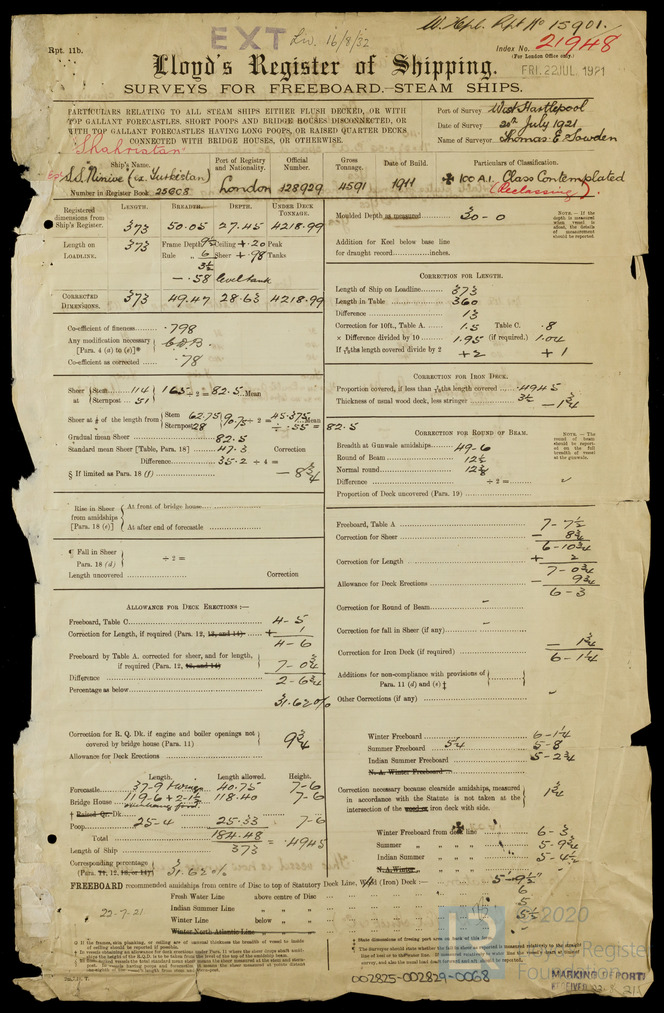 W. Hpl. Rpt No 15901.
EXT Liv. 16/8/32
Rpt. 11b.
Index No. 21948
(For London Office only.)
Lloyd's Register of Shipping.
FRI. 22 JUL. 1921
SURVEYS FOR FREEBOARD.—STEAM SHIPS.
PARTICULARS RELATING TO ALL STEAM SHIPS EITHER FLUSH DECKED, OR WITH
TOP GALLANT FORECASTLES, SHORT POOPS AND BRIDGE HOUSES DISCONNECTED, OR
WITH TOP GALLANT FORECASTLES HAVING LONG POOPS, OR RAISED QUARTER DECKS,
CONNECTED WITH BRIDGE HOUSES, OR OTHERWISE.
Port of Survey West Hartlepool
Date of Survey 20th July 1921
Name of Surveyor Thomas E. Sowden
Shahristan
Ship's Name. Port of Registry and Nationality. Official Number. Gross Tonnage. Date of Build. Particulars of Classification.
S.S. Ninive (ex Turkistan) London 128929 4591 1911 100 A.1. Class Contemplated
Number in Register Book 25808 (Reclassing).
Registered dimensions from Ship's Register. LENGTH. BREADTH. DEPTH. UNDER DECK TONNAGE.
373 50.05 27.45 4218.99
Length on LOADLINE. 373 Frame Depth 9½ Ceiling + .20 Peak
Rule „ 6 Sheer + .98 Tanks
3½
— .58 level tank
CORRECTED DIMENSIONS. 373 49.47 28.63 4218.99
Moulded Depth as measured 30-0
NOTE.—If the depth is measured when vessel is afloat, the details of measurement should be reported.
Addition for Keel below base line
for draught record inches.
CORRECTION FOR LENGTH.
Length of Ship on Loadline 373
Length in Table 360
Difference 13
Correction for 10ft., Table A. 1.5 Table C. .8
× Difference divided by 10 1.95 (if required.) 1.04
If ths length covered divide by 2 +2 +1
Co-efficient of fineness .798
Any modification necessary C.D.B.
[Para. 4 (a) to (e)]*
Co-efficient as corrected .78
Sheer at Stem 114
Sternpost 51
165 ÷ 2 = 82.5 Mean
Sheer at ⅛ of the length from Stem 62.75
Sternpost 28
90.75 ÷ 2 = 45.375 Mean
÷ .55 = 82.5
Gradual mean Sheer 82.5
Standard mean Sheer [Table, Para. 18] 47.3 Correction
Difference 35.2 ÷ 4 =
§ If limited as Para. 18 (f) — 8¾
CORRECTION FOR IRON DECK.
Proportion covered, if less than ths length covered .4945
Thickness of usual wood deck, less stringer 3½ — 1¾
CORRECTION FOR ROUND OF BEAM.
Breadth at Gunwale amidships 49-6
Round of Beam 12½
Normal round 12⅜
Difference ÷ 2 =
Proportion of Deck uncovered (Para. 19)
NOTE.—The round of beam should be reported on the full breadth of vessel at the gunwale.
Rise in Sheer from amidships [Para. 18 (e)]
At front of bridge house
At after end of forecastle
¶ Fall in Sheer Para. 18 (d) ÷ 2 =
Length uncovered Correction
Freeboard, Table A 7-7½
Correction for Sheer — 8¾
6-10¾
Correction for Length + 2
7-0¾
Allowance for Deck Erections — 9¾
6-3
Correction for Round of Beam —
Correction for fall in Sheer (if any) —
Correction for Iron Deck (if required) — 1¾
6-1¼
Additions for non-compliance with provisions of
Para. 11 (d) and (e) ‡
Other Corrections (if any)
ALLOWANCE FOR DECK ERECTIONS :—
Freeboard, Table C. 4-5
Correction for Length, if required (Para. 12, 13, and 14) + 1
4-6
Freeboard by Table A. corrected for sheer, and for length,
if required (Para. 12, 13, and 14) 7-0¾
Difference 2-6¾
Percentage as below 31.62%
Correction for R. Q. Dk. if engine and boiler openings not
covered by bridge house (Para. 11) 9¾
Allowance for Deck Erections
Length. Length allowed. Height.
Forecastle 37-9 40.75 7-6
Bridge House 119-6 + 2-1½ 118.40 7-6
† Raised Qr. Dk.
Poop 25-4 25.33 7-6
Total 184.48
Length of Ship 373 = .4945
Corresponding percentage
(Para. 11, 12, 13, or 14) 31.62%
Winter Freeboard 6-1¼
Summer Freeboard 5¼ 5-8
Indian Summer Freeboard 5-2¾
N. A. Winter Freeboard
Correction necessary because clearside amidships, measured
in accordance with the Statute is not taken at the
intersection of the wood or iron deck with side. 1¾
Winter Freeboard from deck line 6-3
Summer „ „ „ „ 5-9¾
Indian Summer „ „ „ 5-4½
N.A. Winter
FREEBOARD recommended amidships from centre of Disc to top of Statutory Deck Line, Wood (Iron) Deck :— 5'-9½"
Fresh Water Line above centre of Disc 6
Indian Summer Line „ „ 5
Winter Line below „ 5½
Winter North Atlantic Line „
22-7-21
MARKING REPORT
RECEIVED
002825-002829-0068
2020